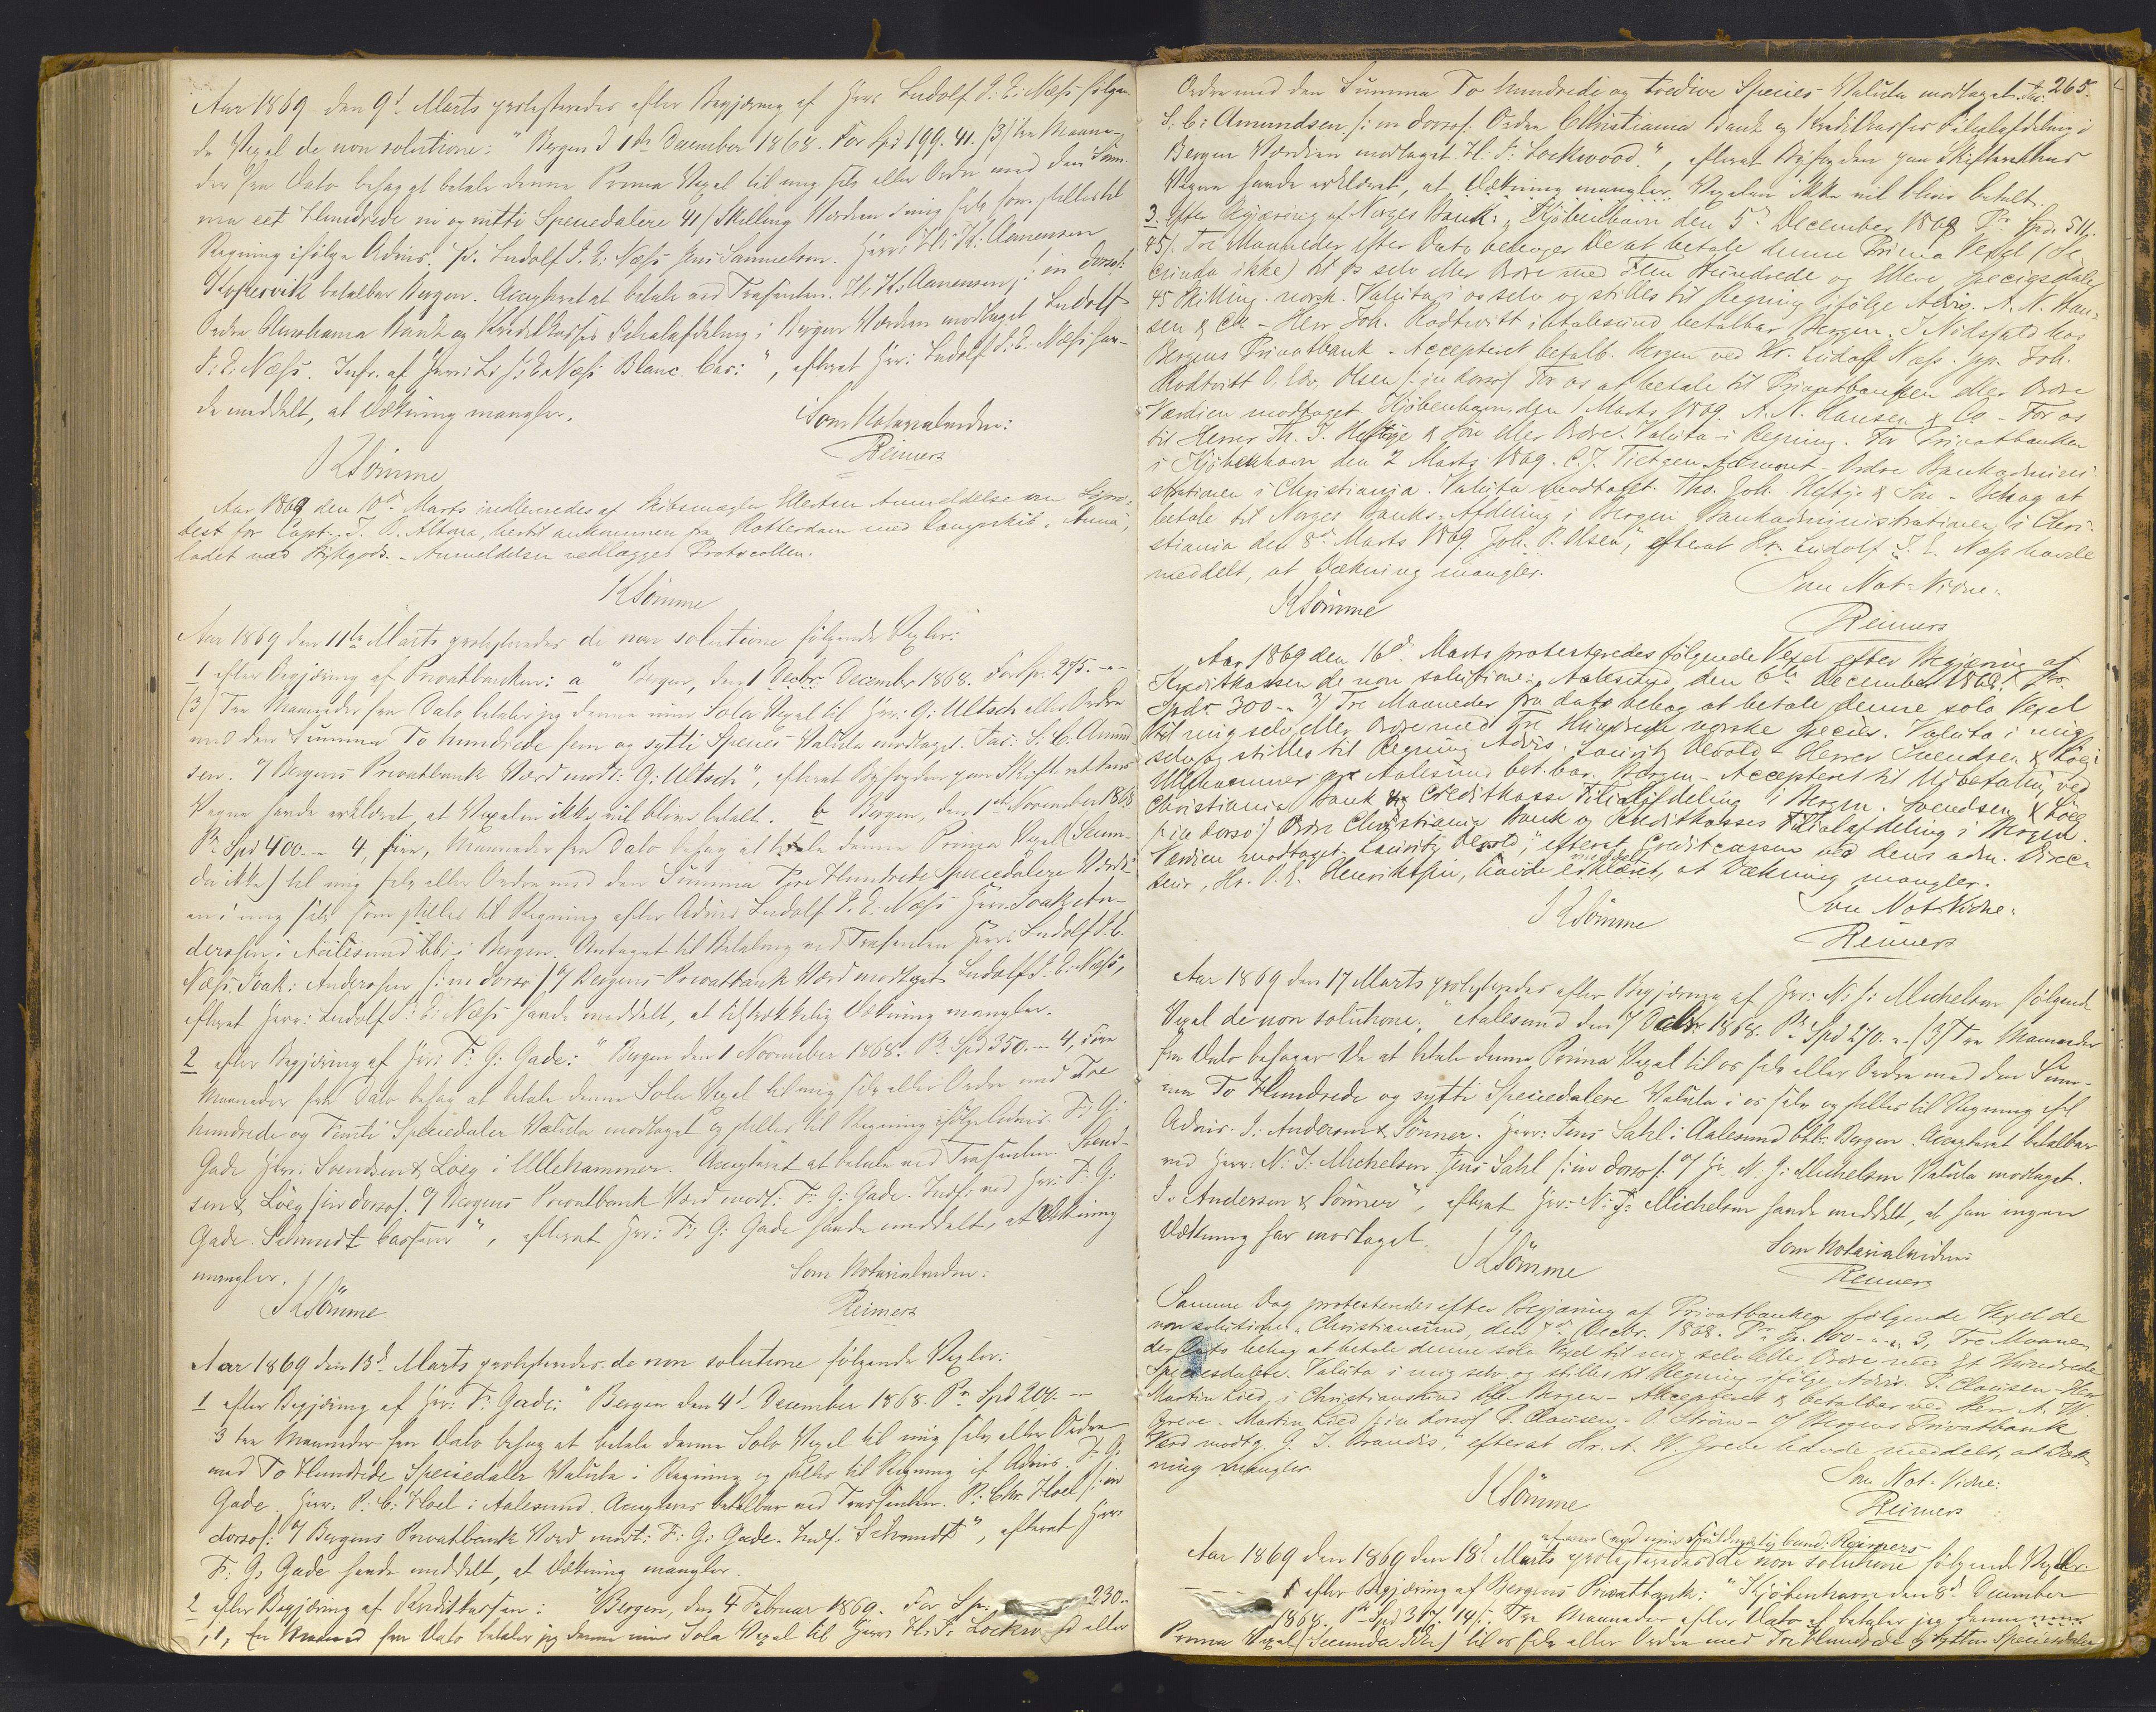 Aar 1869 den 9d Marts protesteredes efter Begjæring af Herr Ludolf J: E: Næss følgen-
de Vexel de non solutione: "Bergen d 1ste December 1868. For Spd 199. 41. /3/ tre Maane-
der fra Dato behag at betale denne Prima Vexel til mig selv eller Ordre med den Sum-
ma eet Hundrede ni og nitti Speciedalere 41/ Skilling, Værdien i mig selv som stilles til
Regning ifølge Advis. Ludolf J. E: Næss Jens Samuelsen. Herr: H: K: Aanensen
Kopervik betalbar Bergen. Accepteret at betale ved Trassenten. H: K: Aanensen /: in dorso:/
Ordre Christiania Bank og Kreditkasses Filialafdeling i Bergen Værdien modtaget Ludolf
J: E: Næss. Blanc. Cas:", efterat Herr: Ludolf J: E: Næss hav-
de meddelt, at Dækning mangler.
Som Notarialvidne:
KSömme
Reimers
Aar 1869 den 10de Marts indleveredes af Skibsmægler Ellertsen Anmeldelse om Søpro-
test for Capt. J. A. Altona, hertil ankommen fra Rotterdam med Dampskib "Anna",
ladet med Stykgods. - Anmeldelsen vedlægges Protocollen.
KSömme
Aar 1869 den 11te Marts protesteredes de non solutione følgende Vexler:
1 efter Begjæring af Privatbanken: a "Bergen, den 1 Decbr. December 1868. For Sp: 275. -"-
(3) Tre Maaneder fra Dato betaler jeg denne min Sola Vexel til Herr: G: Ultsch eller Ordre
med den Summa To hundrede fem og sytti Species Valuta modtaget. Fac: S: C. Amund-
sen. o/ Bergens Privatbank Værd modt: G: Ultsch", efterat Byfogden paa Skifterettens
Vegne havde erklæret, at Vexelen ikke vil blive betalt. b Bergen, den 1ste November 1868
Pr Spd 400. -- 4, fire, Maaneder fra Dato behag at betale denne Prima Vexel (Secun-
da ikke) til mig selv eller Ordre med den Summa Fire Hundrede Speciedalere Værdi-
en i mig selv som stilles til Regning efter Advis Ludolf J. E: Næss Herr. Isak: An-
dersen i Aalesund bb: i Bergen. Antaget til Betaling ved Trassenten Herr: Ludolf J. E.
Næss. Isak: Andersen /: in dorso:/ o/ Bergens Privatbank Værd modtaget Ludolf J: E: Næss",
efterat Herr: Ludolf J: E: Næss havde meddelt, at tilstrækkelig Dækning mangler.
2 efter Begjæring af Herr: F: G: Gade: "Bergen den 1 November 1868. Pr Spd 350. -- 4, Fire
Maaneder fra Dato behag at betale denne Sola Vexel til mig selv eller Ordre med Tre
hundrede og Femti Speciedaler Valuta modtaget og stilles til Regning ifølge Advis. F: G:
Gade Herr: Svendsen & Löeg i Ulfehammer. Accepteret at betale ved Trassenten. Svend-
sen & Löeg /: in dorso:/ o/ Bergens Privatbank Værd modt: F: G: Gade. Indf: ved Herr: F: G:
Gade. Schmidt Casserer", efterat Herr: F: G: Gade havde meddelt, at Dækning
mangler.
Som Notarialvidne:
KSömme
Reimers
Aar 1869 den 13d Marts protesteredes de non solutione følgende Vexler:
1 efter Begjæring af Herr: F: Gade: "Bergen den 4d December 1868. Pr Spd 200. --
3 tre Maaneder fra Dato behag at betale denne Sola Vexel til mig selv eller Ordre
med To Hundrede Speciedaler Valuta i Regning og stilles til Regning if Advis. F: G:
Gade. Herr: P: C: Hoel i Aalesund. Accepteres betalbar ved Trassenten. P: Chr. Hoel /: in
dorso:/ o/ Bergens Privatbank Værd modt: F: G: Gade. Indf. Schmidt", efterat Herr
F: G: Gade havde meddelt, at Dækning mangler.
2 efter Begjæring af Kreditkassen: "Bergen, den 4 Februar 1869. For Spr. 230.
/1/ En Maaned fra Dato betaler jeg denne min Sola Vexel til Herr: H. F. Lockwood eller
265.
Ordre med den Summa To hundrede og tredive Species Valuta modtaget. Fac:
S: C: Amundsen /: in dorso:/ Ordre Christiania Bank og Kreditkasses Filialafdeling i
Bergen Værdien modtaget. H. F: Lockwood.", efterat Byfogden paa Skifterettens
Vegne havde erklæret, at Dækning mangler Vexelen ikke vil blive betalt.
3. Efter Begjæring af Norges Bank: "Kjöbenhavn den 5d December 1868 Pr Spd. 511.
45/. Tre Maaneder efter Dato behager De at betale denne Prima Vexel (Se-
cunda ikke) til os selv eller Ordre med Fem Hundrede og Elleve Speciesdaler
45 Skilling norsk. Valuta i os selv og stilles til Regning ifölge Advis. A. N. Han-
sen & Co. - Herr Joh. Rodtwitt i Aalesund betalbar Bergen. I Nödsfald hos
Bergens Privatbank - Accepteret betalb. Bergen ved Hr. Ludolf Næss. pp. Joh.
Rodtvitt O. Edv. Olsen /: in dorso:/ For os at betale til Privatbanken eller Ordre
Værdien modtaget. Kjöbenhavn den 1 Marts 1869. A. N. Hansen & Co - For os
til Herrer Th. J. Heftye & Sön eller Ordre. Valuta i Regning. For Privatbanken
i Kjöbenhavn den 2 Marts 1869. C. F. Tietgen - Ordre Bankadmini-
strationen i Christiania. Valuta modtaget. Tho. Joh. Heftye & Sön - Behag at
betale til Norges Banks Afdeling i Bergen Bankadministrationen i Chri-
stiania den 8d Marts 1869. Joh. P. Olsen", efterat Hr. Ludolf J. E. Næss havde
meddelt, at Dækning mangler.
Som Not-Vidne:
KSömme
Reimers
Aar 1869 den 16d. Marts protesteredes følgende Vexel efter Begjæring af
Kreditkassen de non solutione: "Aalesund den 6te December 1868. Pr.
Spdr 300 -- 3/ Tre Maaneder fra dato behag at betale denne sola Vexel
til mig selv eller Ordre med Tre Hundrede norske Species. Valuta i mig
selv og stilles til Regning Advis. Lauritz Devold - Herrer Svendsen & Löeg i
Ulfehammer pr Aalesund bet.bar Bergen - Accepteret til Udbetaling ved
Christiania Bank og Creditkasse Filialafdeling i Bergen. Svendsen & Löeg
/: in dorso:/ Ordre Christiania Bank og Kreditkasses Filialafdeling i Bergen
Værdien modtaget. Lauritz Devold", efterat Creditcassen ved dens adm. Direc-
teur, Hr. O. E. Henriksen, havde erklæret, at Dækning mangler.
meddelt
Som Not-Vidne:
KSömme
Reimers
Aar 1869 den 17 Marts protesteredes efter Begjæring af Herr: N: J: Michelsen følgende
Vexel de non solutione: "Aalesund den 7 Decbr 1868. Pr Spd 270. -- (3) Tre Maaneder
fra Dato behager De at betale denne Prima Vexel til os selv eller Ordre med den Sum-
ma To Hundrede og sytti Speciedalere Valuta i os selv og stilles til Regning ifl
Advis. J: Andersen & Sønner. Herr: Jens Sahl i Aalesund btlb: Bergen. Accepteret betalbar
ved Herr: N. J: Michelsen. Jens Sahl /: in dorso:/ o/ Hr N. J: Michelsen Valuta modtaget.
J. Andersen & Sönner", efterat Herr: N: J: Michelsen havde meddelt, at han ingen
Dækning har modtaget.
Som Notarialvidne:
KSömme
Reimers
Samme Dag protesteredes efter Begjæring af Privatbanken følgende Vexel de
non solutione: "Christiansund, den 7d Decbr. 1868. Pr Sp. 100 -- 3, Tre Maane-
der Dato behag at betale denne sola Vexel til mig selv eller Ordre med Et Hundrede
Speciesdalere. Valuta i mig selv og stilles til Regning ifölge Advis. P. Clausen - Herr
Martin Lied i Christiansund btlb. Bergen - Accepteret & betalbar ved Herr A. W.
Greve. Martin Lied /: in dorso:/ P. Clausen. - O. Ström - o/ Bergens Privatbank
Værd modtg. G. J. Brandis," efterat Hr. A. W. Greve havde meddelt, at Dæk-
ning mangler.
Som Not-Vidne:
KSömme
Reimers
Reimers
Aar 1869 den 1869 den 18d Marts protesteredes de non solutione følgende Vexler.
1 efter Begjæring af Bergens Privatbank: "Kjöbenhavn den 8d December
1868. Pr Spd 317. 14/. Tre Maaneder efter Dato betaler jeg denne min
Prima Vexel (Secunda ikke) til os selv eller Ordre med Tre Hundrede og sytten Speciesdaler